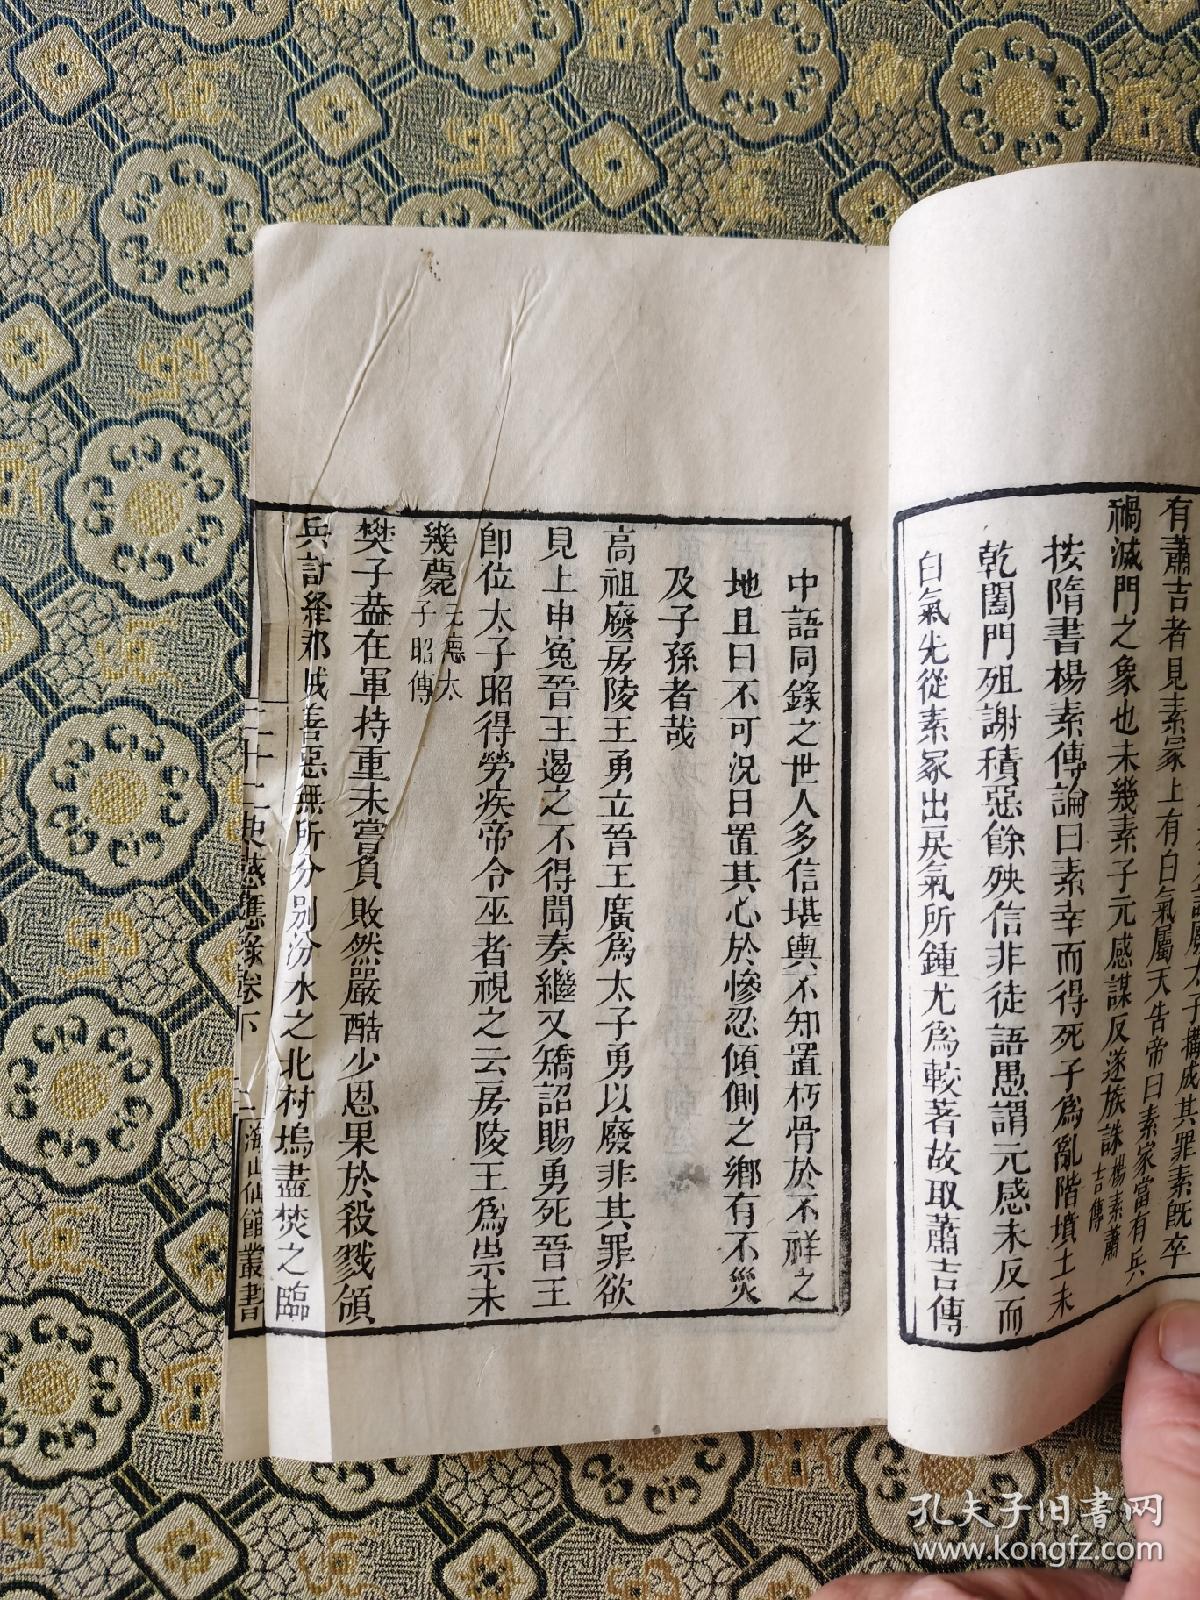 有蕭吉者見素冢上有白氣屬天告帝曰素家當有兵
禍滅門之象也未幾素子元感謀反遂族誅楊素蕭
吉傳
按隋書楊素傳論曰素幸而得死子為亂階墳土未
乾闔門殂謝積惡餘殃信非徒語愚謂元感未反而
白氣先從素冢出戾氣所鍾尤為較著故取蕭吉傳
中語同錄之世人多信堪輿不知置朽骨於不祥之
地且曰不可況日置其心於慘忍傾側之鄉有不災
及子孫者哉
高祖廢房陵王勇立晉王廣為太子勇以廢非其罪欲
見上申冤晉王遏之不得聞奏繼又矯詔賜勇死晉王
卽位太子昭得勞疾帝令巫者視之云房陵王為祟未
幾薨元德太
子昭傳
樊子蓋在軍持重未嘗負敗然嚴酷少恩果於殺戮領
兵討絳郡賊善惡無所分別汾水之北村塢盡焚之臨
二十二史感應錄卷下
海山仙館叢書
孔夫子旧书网
www.kongfz.com